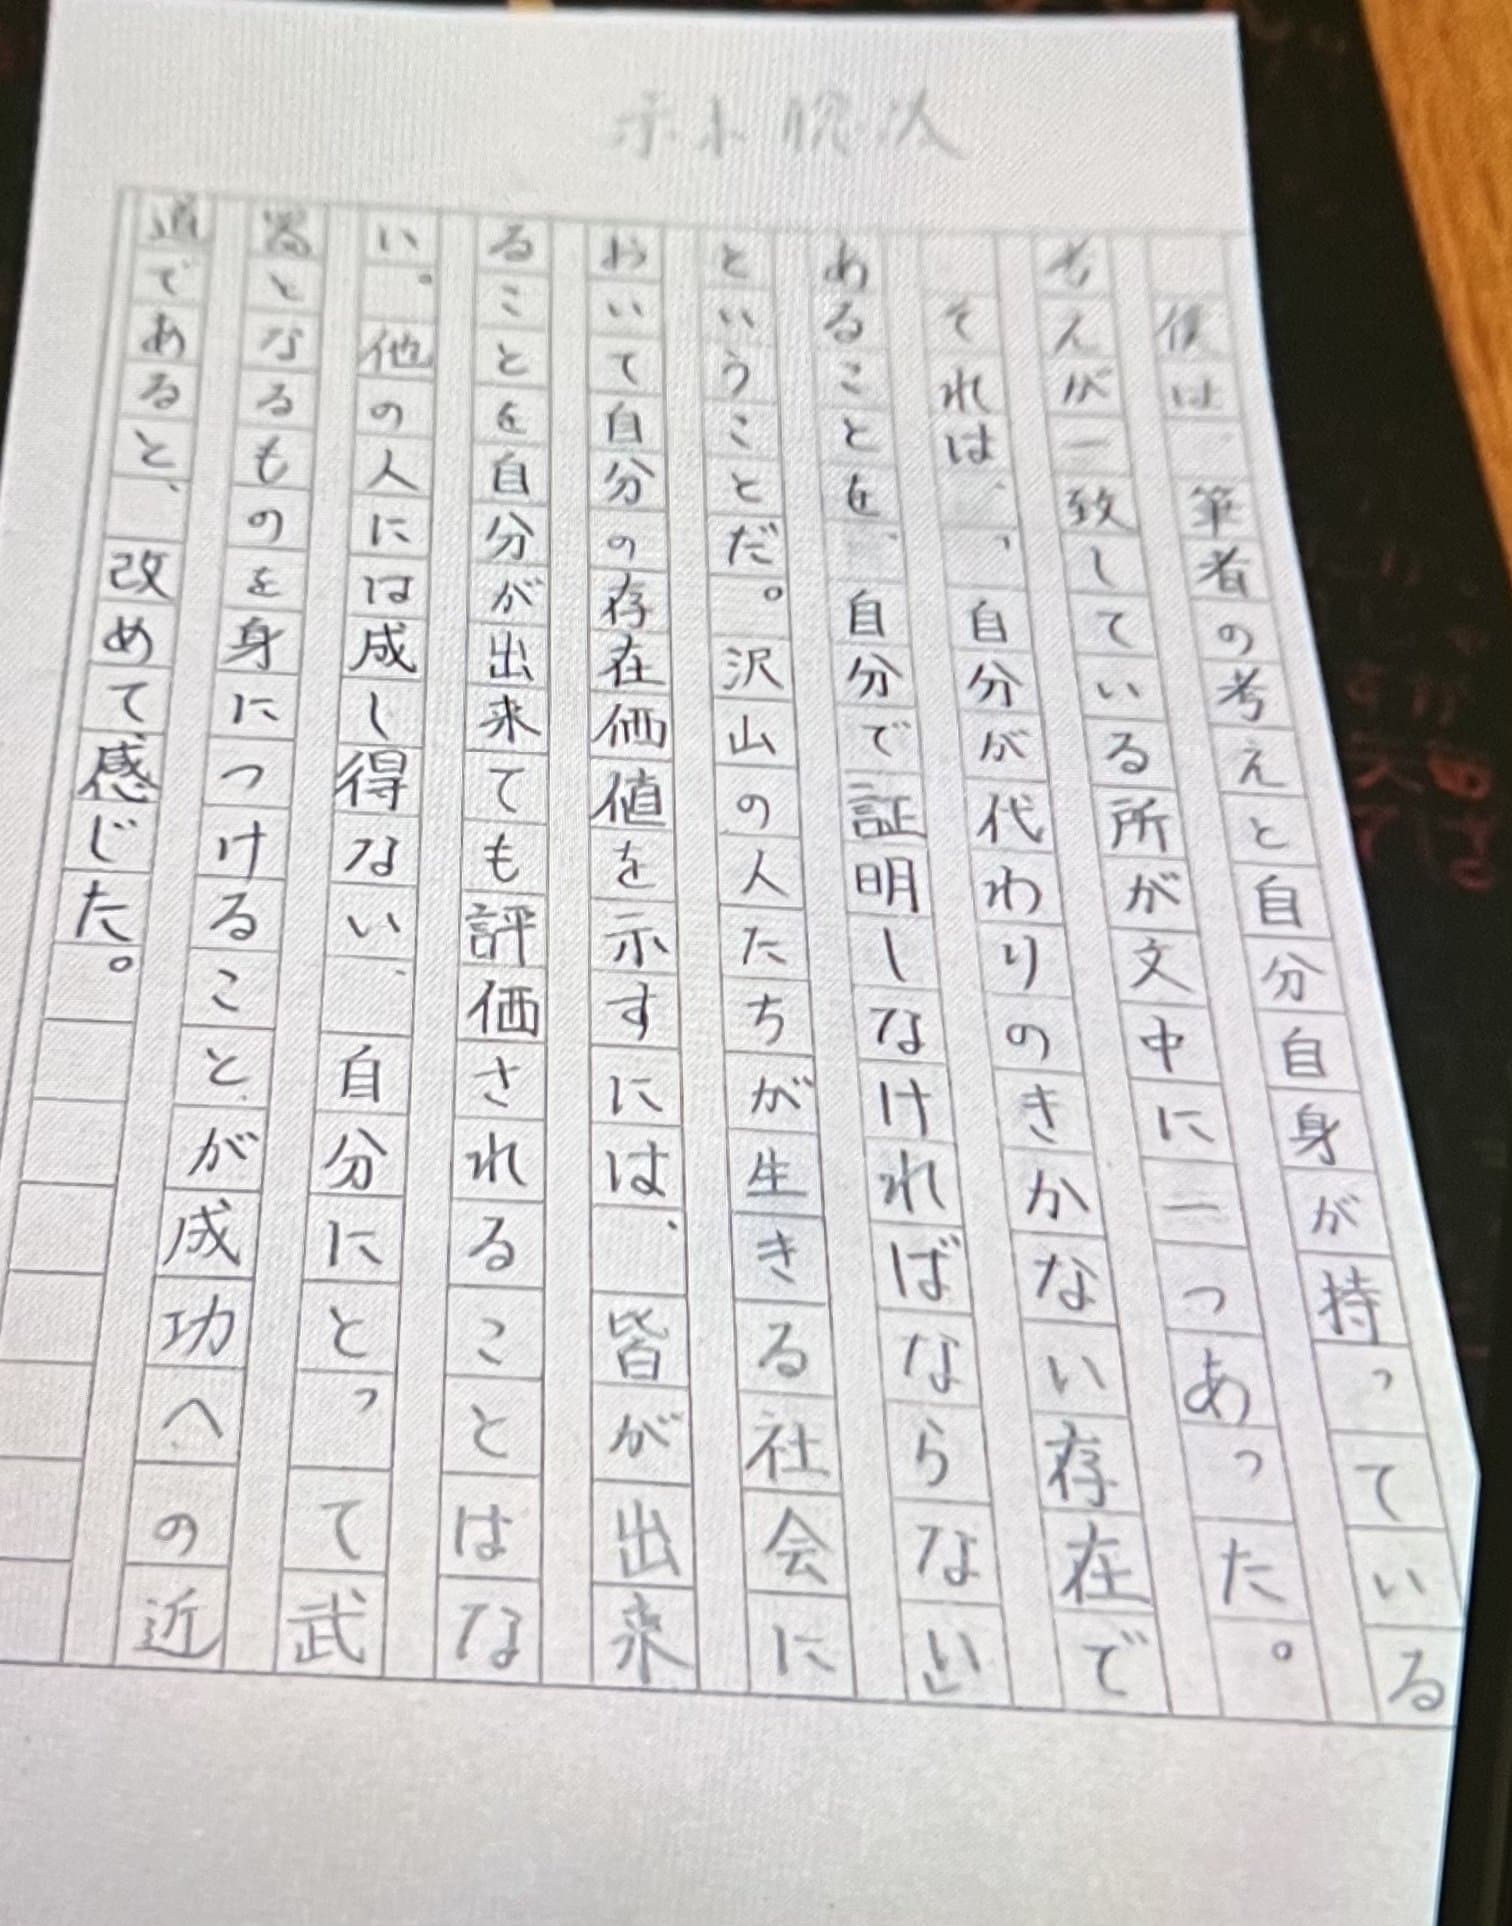 僕は、筆者の考えと自分自身が持っている
考えが一致している所が文中に二つあった。
それは、、自分が代わりのきかない存在で
あることを、自分で証明しなければならない」
ということだ。沢山の人たちが生きる社会に
おいて自分の存在価値を示すには、皆が出来
ることを自分が出来ても評価されることはな
い。他の人には成し得ない、自分にとって武
器となるものを身につけることが成功への近
道であると、改めて感じた。